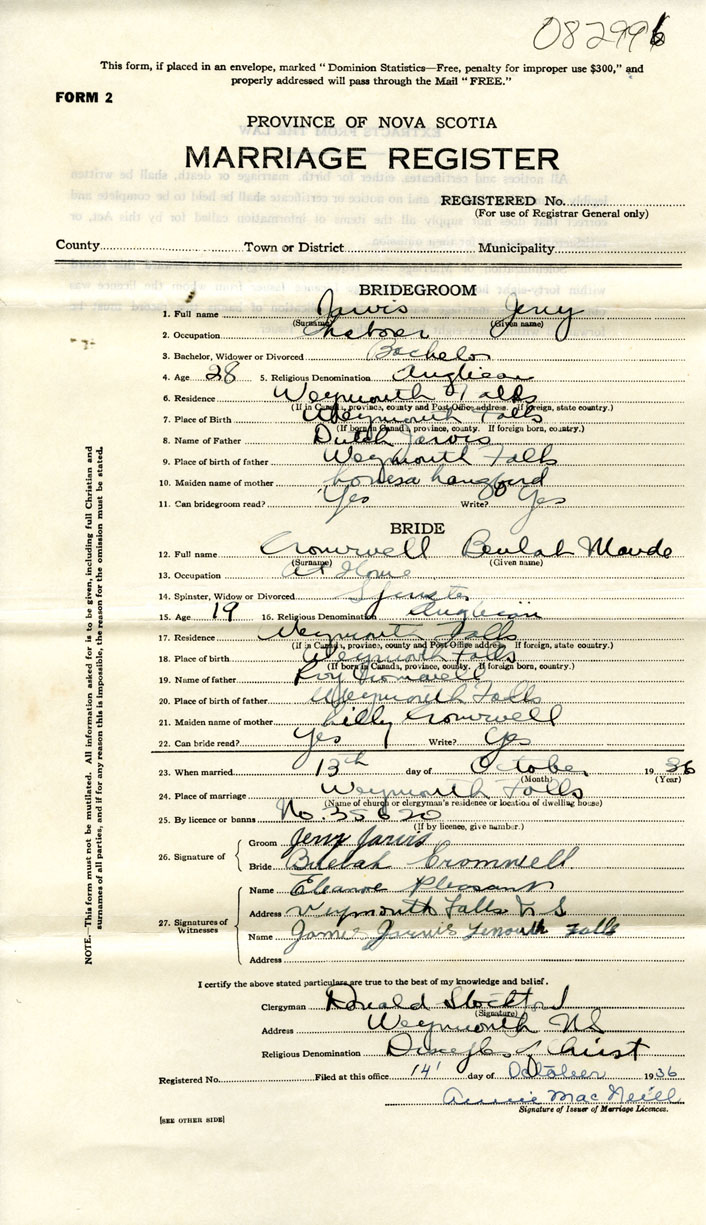 08299
This form, if placed in an envelope, marked "Dominion Statistics—Free, penalty for improper use $300," and
properly addressed will pass through the Mail "FREE."
FORM 2
PROVINCE OF NOVA SCOTIA
MARRIAGE REGISTER
REGISTERED No.
(For use of Registrar General only)
County Town or District Municipality
BRIDEGROOM
1. Full name Jarvis Jerry
(Surname) (Given name)
2. Occupation Laborer
3. Bachelor, Widower or Divorced Bachelor
4. Age 28 5. Religious Denomination Anglican
6. Residence Weymouth Falls
(If in Canada, province, county and Post Office address. If foreign, state country.)
7. Place of Birth Weymouth Falls
(If born in Canada, province, county. If foreign born, country.)
8. Name of Father Dutch Jarvis
9. Place of birth of father Weymouth Falls
10. Maiden name of mother Langford
11. Can bridegroom read? Yes Write? Yes
BRIDE
12. Full name Cromwell Beulah Maude
(Surname) (Given name)
13. Occupation At Home
14. Spinster, Widow or Divorced Spinster
15. Age 19 16. Religious Denomination Anglican
17. Residence Weymouth Falls
(If in Canada, province, county and Post Office address. If foreign, state country.)
18. Place of birth Weymouth Falls
(If born in Canada, province, county. If foreign born, country.)
19. Name of father Roy Cromwell
20. Place of birth of father Weymouth Falls
21. Maiden name of mother Lilly Cromwell
22. Can bride read? Yes Write? Yes
23. When married 13th day of October 1936
(Month) (Year)
24. Place of marriage Weymouth Falls
(Name of church or clergyman's residence or location of dwelling house)
25. By licence or banns No. 35620
(If by licence, give number.)
26. Signature of
Groom Jerry Jarvis
Bride Beulah Cromwell
27. Signatures of Witnesses
Name Eleanor Pleasant
Address Weymouth Falls N S
Name James Jarvis Falls
Address
I certify the above stated particulars are true to the best of my knowledge and belief.
Clergyman Donald Stockford
(Signature)
Address Weymouth NS
Religious Denomination of Christ
Registered No. Filed at this office 14 day of October 1936
Annie MacNeill
Signature of Issuer of Marriage Licences.
[SEE OTHER SIDE]
NOTE.—This form must not be mutilated. All information asked for is to be given, including full Christian and
surnames of all parties, and if for any reason this is impossible, the reason for the omission must be stated.